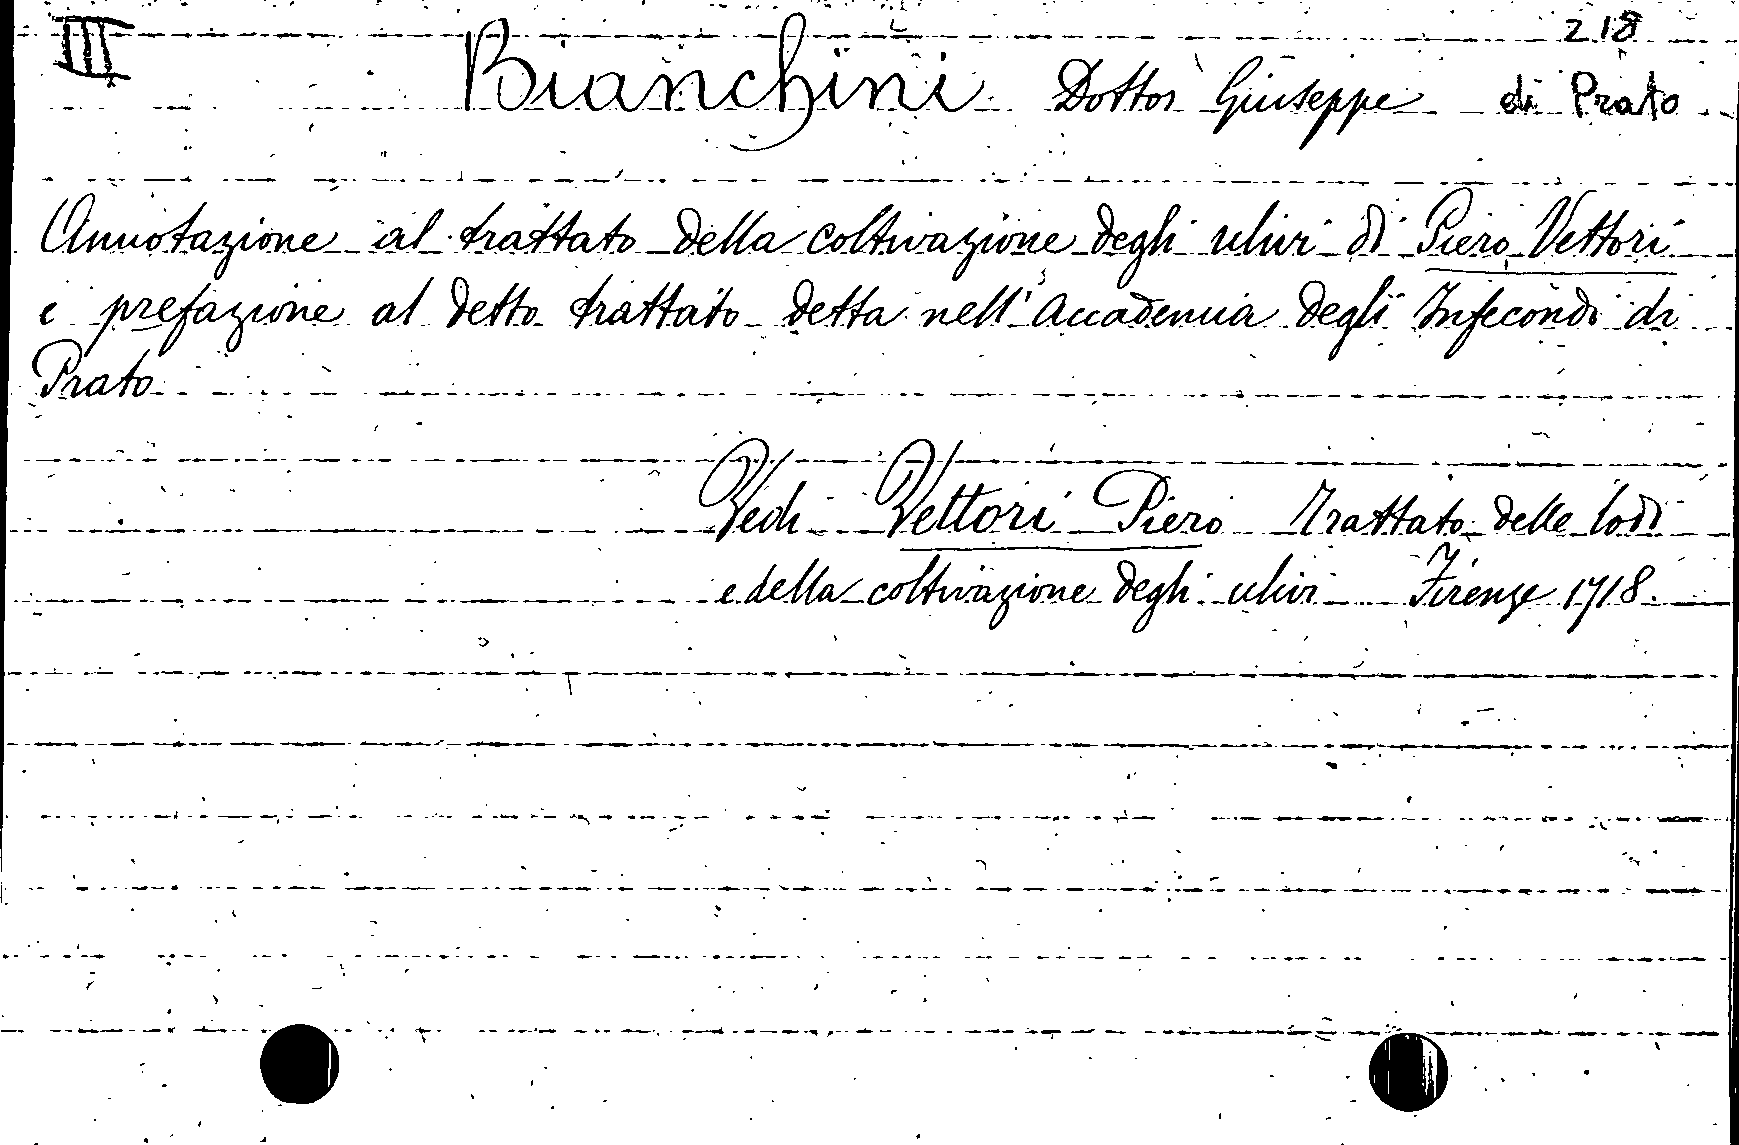 III 218
Bianchini Dottor Giuseppe di Prato
Annotazione al trattato della coltivazione degli ulivi di Piero Vettori
e prefazione al detto trattato detta nell'Accademia degli Infecondi di
Prato
Vedi Vettori Piero Trattato delle lodi
e della coltivazione degli ulivi Firenze 1718.